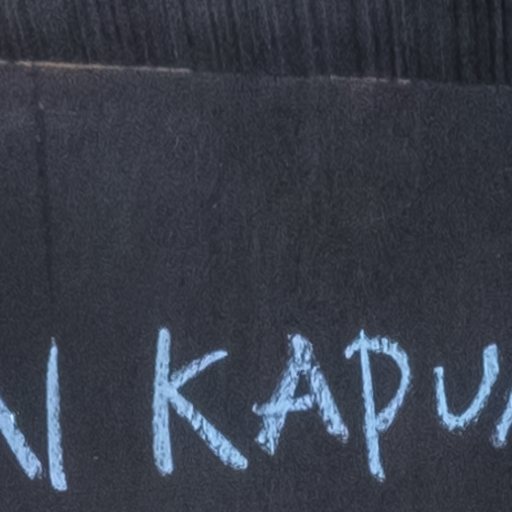 N KAPU